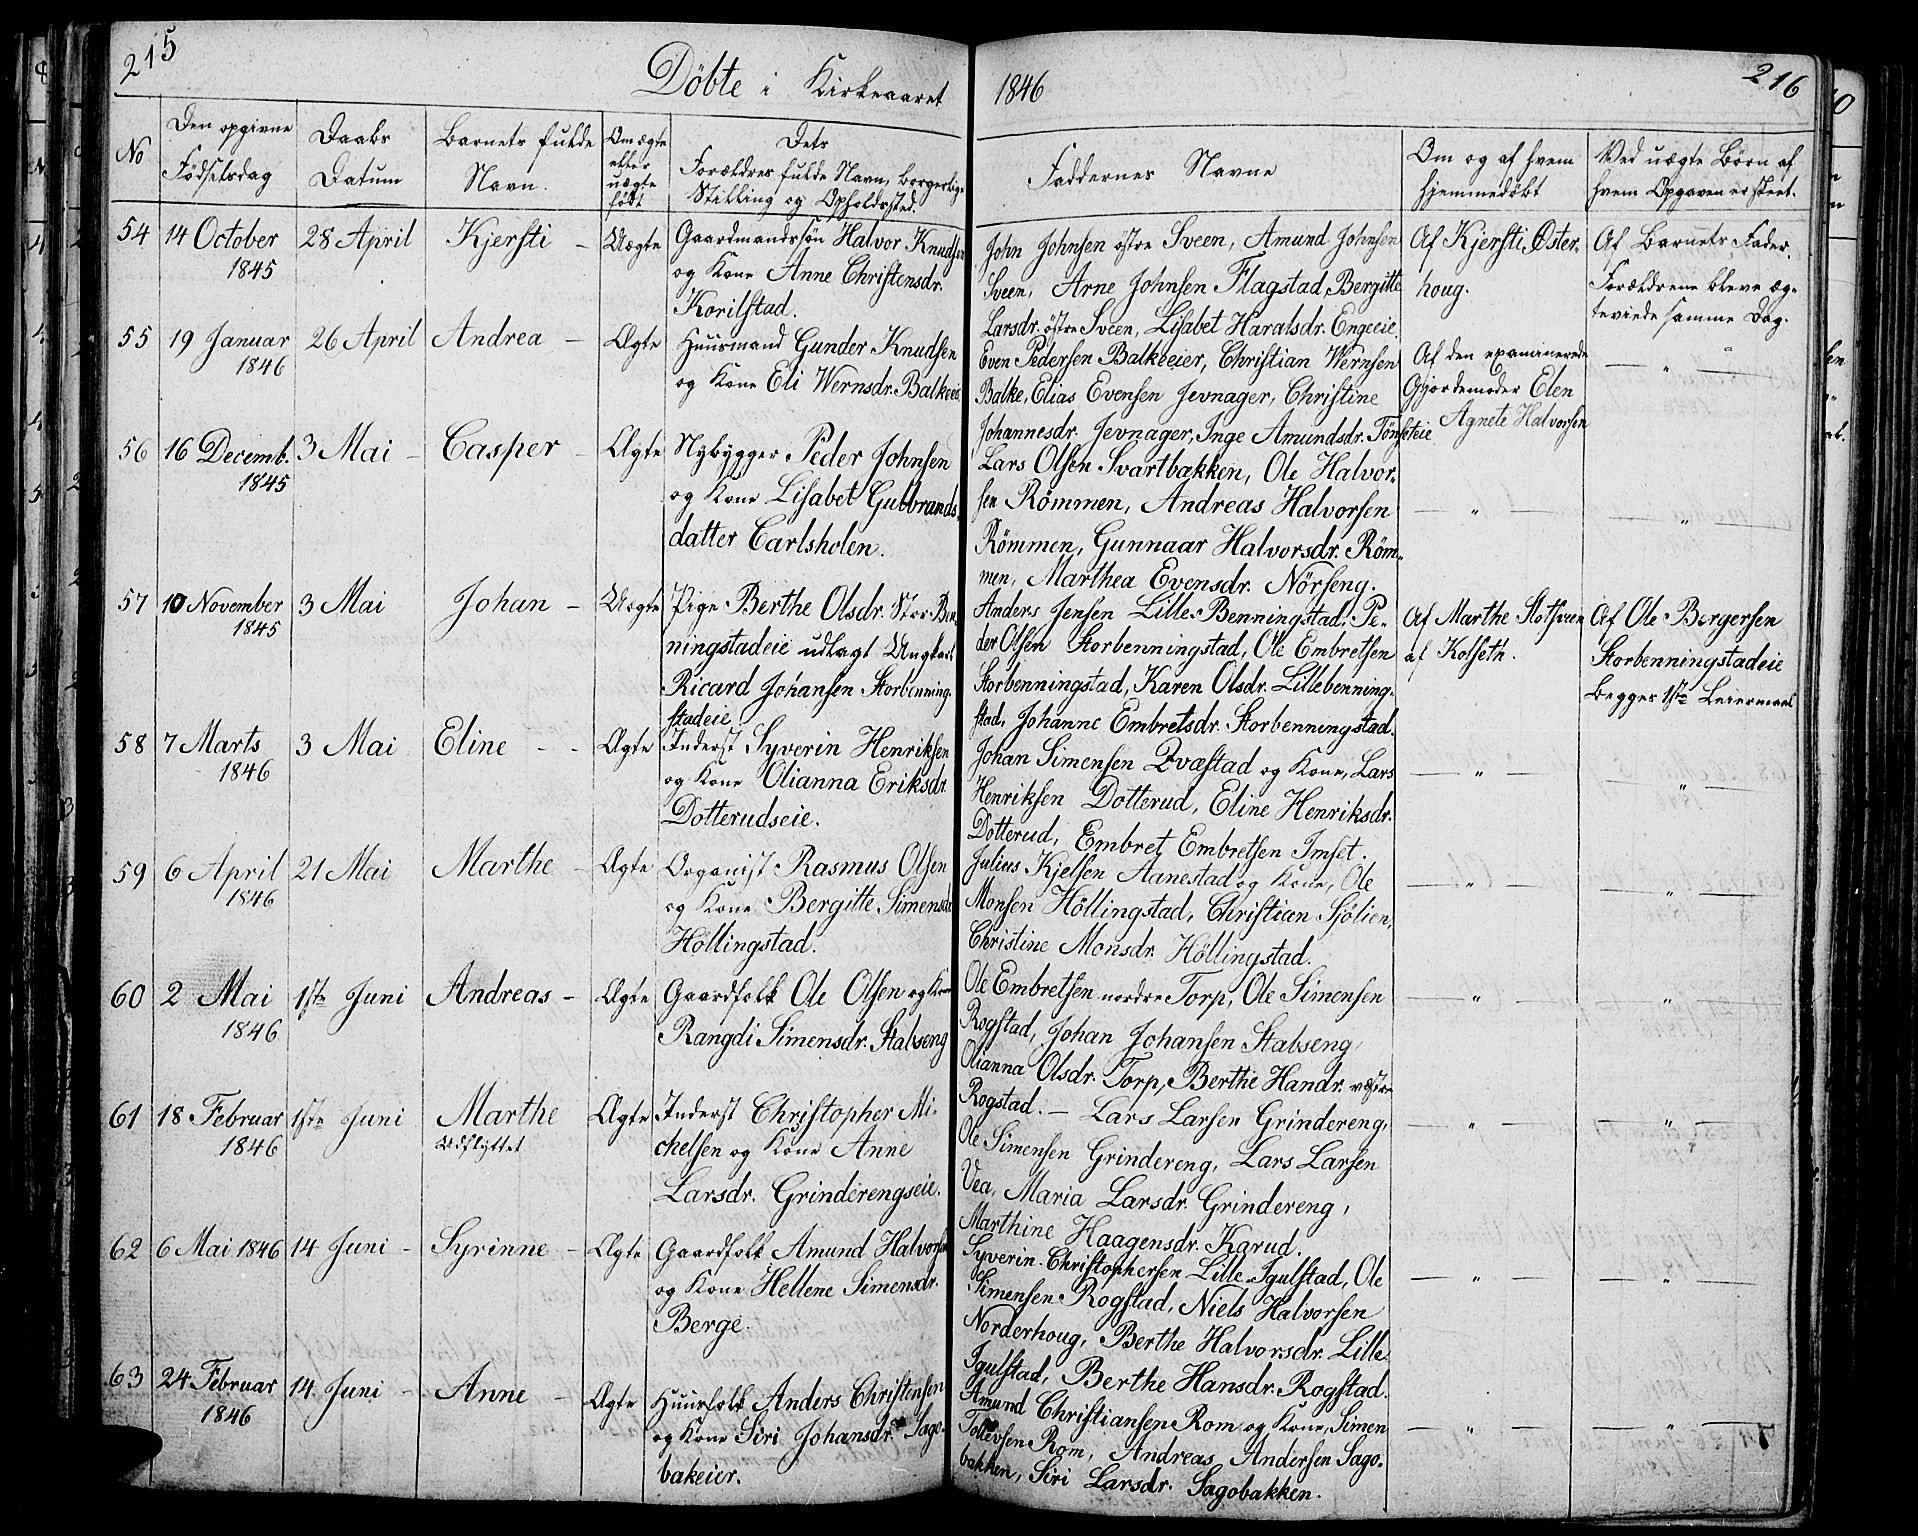 215
Döbte i Kirkeaaret
1846
216
No
Den opgivne Födselsdag
Daabs Datum
Barnets fulde Navn.
Om ægte eller uægte födt
Dets Forældres fulde Navn, borgerlige Stilling og Opholdssted.
Faddernes Navne
Om og af hvem hjemmedöbt
Ved uægte Börn af hvem Opgaven er skeet.
54
14 October
1845
28 April
Kjersti -
Uægte
Gaardmandssön Halvor Knudsen
og Kone Anne Christensdr.
Korilstad.
John Johnsen östre Sveen, Amund Johnsen
Sveen, Arne Johnsen Flagstad, Bergitte
Larsdr. östre Sveen, Lisabet Haralsdr. Engeeie.
Af Kjersti Öster-
houg.
Af Barnets Fader.
Forældrene bleve æg-
teviede samme Dag.
55
19 Januar
1846
26 April
Andrea -
Ægte
Huusmand Gunder Knudsen
og Kone Eli Wernsdr. Balkeeie
Even Pedersen Balkeeier, Christian Wernsen
Balke, Elias Evensen Jevnager, Christine
Johannesdr. Jevnager, Inge Amundsdr. Tönseteie
Af den examinerede
Gjordemoder Elen
Agnete Halvorsen
— " —
56
16 Decemb.
1845
3 Mai -
Casper -
Ægte
Nybygger Peder Johnsen
og Kone Lisabet Gulbrands
datter Carlsholen.
Lars Olsen Svartbakken, Ole Halvor-
sen Römmen, Andreas Halvorsen
Römmen, Gunnaar Halvorsdr. Röm-
men, Marthea Evensdr. Nörseng.
— " —
— " —
57
10 November
1845
3 Mai
Johan -
Uægte
Pige Berthe Olsdr. Stor Ben
ningstadeie udlagt Ungkarl
Ricard Johansen Storbenning-
stadeie
Anders Jensen Lille-Benningstad, Pe-
der Olsen Storbenningstad, Ole Embretsen
Storbenningstad, Karen Olsdr. Lillebenning-
stad, Johanne Embretsdr. Storbenningstad.
Af Marthe Slotsveen
af Kolseth.
Af Ole Bergersen
Storbenningstadeie
Begges 1ste Leiermaal
58
7 Marts
1846
3 Mai
Eline - -
Ægte
Inderst Syverin Henriksen
og Kone Olianna Eriksdr
Dotterudseie.
Johan Simensen Qvæstad og Kone, Lars
Henriksen Dotterud, Eline Henriksdr.
Dotterud, Embret Embretsen Imset.
— " —
— " —
59
6 April
1846
21 Mai
Marthe -
Ægte
Organist Rasmus Olsen
og Kone Bergitte Simensdr
Höllingstad.
Julius Kjelsen Aanestad og Kone, Ole
Monsen Höllingstad, Christian Sjölien,
Christine Monsdr. Höllingstad.
— " —
— " —
60
2 Mai
1846
1ste Juni
Andreas -
Ægte
Gaardfolk Ole Olsen og Kone
Rangdi Simensdr. Stabseng
Ole Embretsen nordre Torp, Ole Simensen
Rogstad, Johan Johansen Stabseng,
Olianna Olsdr. Torp, Berthe Handr. vestre
Rogstad. —
— " —
— " —
61
18 Februar
1846
1ste Juni
Marthe
Udflyttet
Ægte
Inderst Christopher Mi-
chelsen og Kone Anne
Larsdr. Grinderengseie.
Lars Larsen Grindereng,
Ole Simensen Grindereng, Lars Larsen
Vea, Maria Larsdr. Grindereng,
Marthine Haagensdr. Karud.
— " —
— " —
62
6 Mai 1846
14 Juni -
Syrinne -
Ægte
Gaardfolk Amund Halvorsen
og Kone Hellene Simensdr.
Berge.
Syverin Christophersen Lille-Igulstad, Ole
Simensen Rogstad, Niels Halvorsen
Norderhoug, Berthe Halvorsdr. Lille-
Igulstad, Berthe Hansdr. Rogstad.
— " —
— " —
63
24 Februar
1846
14 Juni -
Anne -
Ægte
Huusfolk Anders Christensen
og Kone Siri Johansdr. Sago-
bakeier.
Amund Christiansen Rom og Kone, Simen
Tollevsen Rom, Andreas Andersen Sago-
bakken, Siri Larsdr. Sagobakken.
— " —
— " —